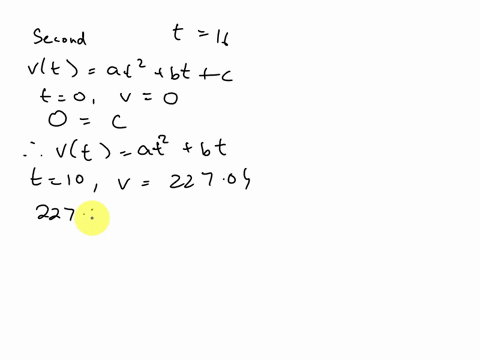 Second t = 16
v(t) = at² + bt + c
t = 0, v = 0
0 = c
∴ v(t) = at² + bt
t = 10, v = 227.04
227